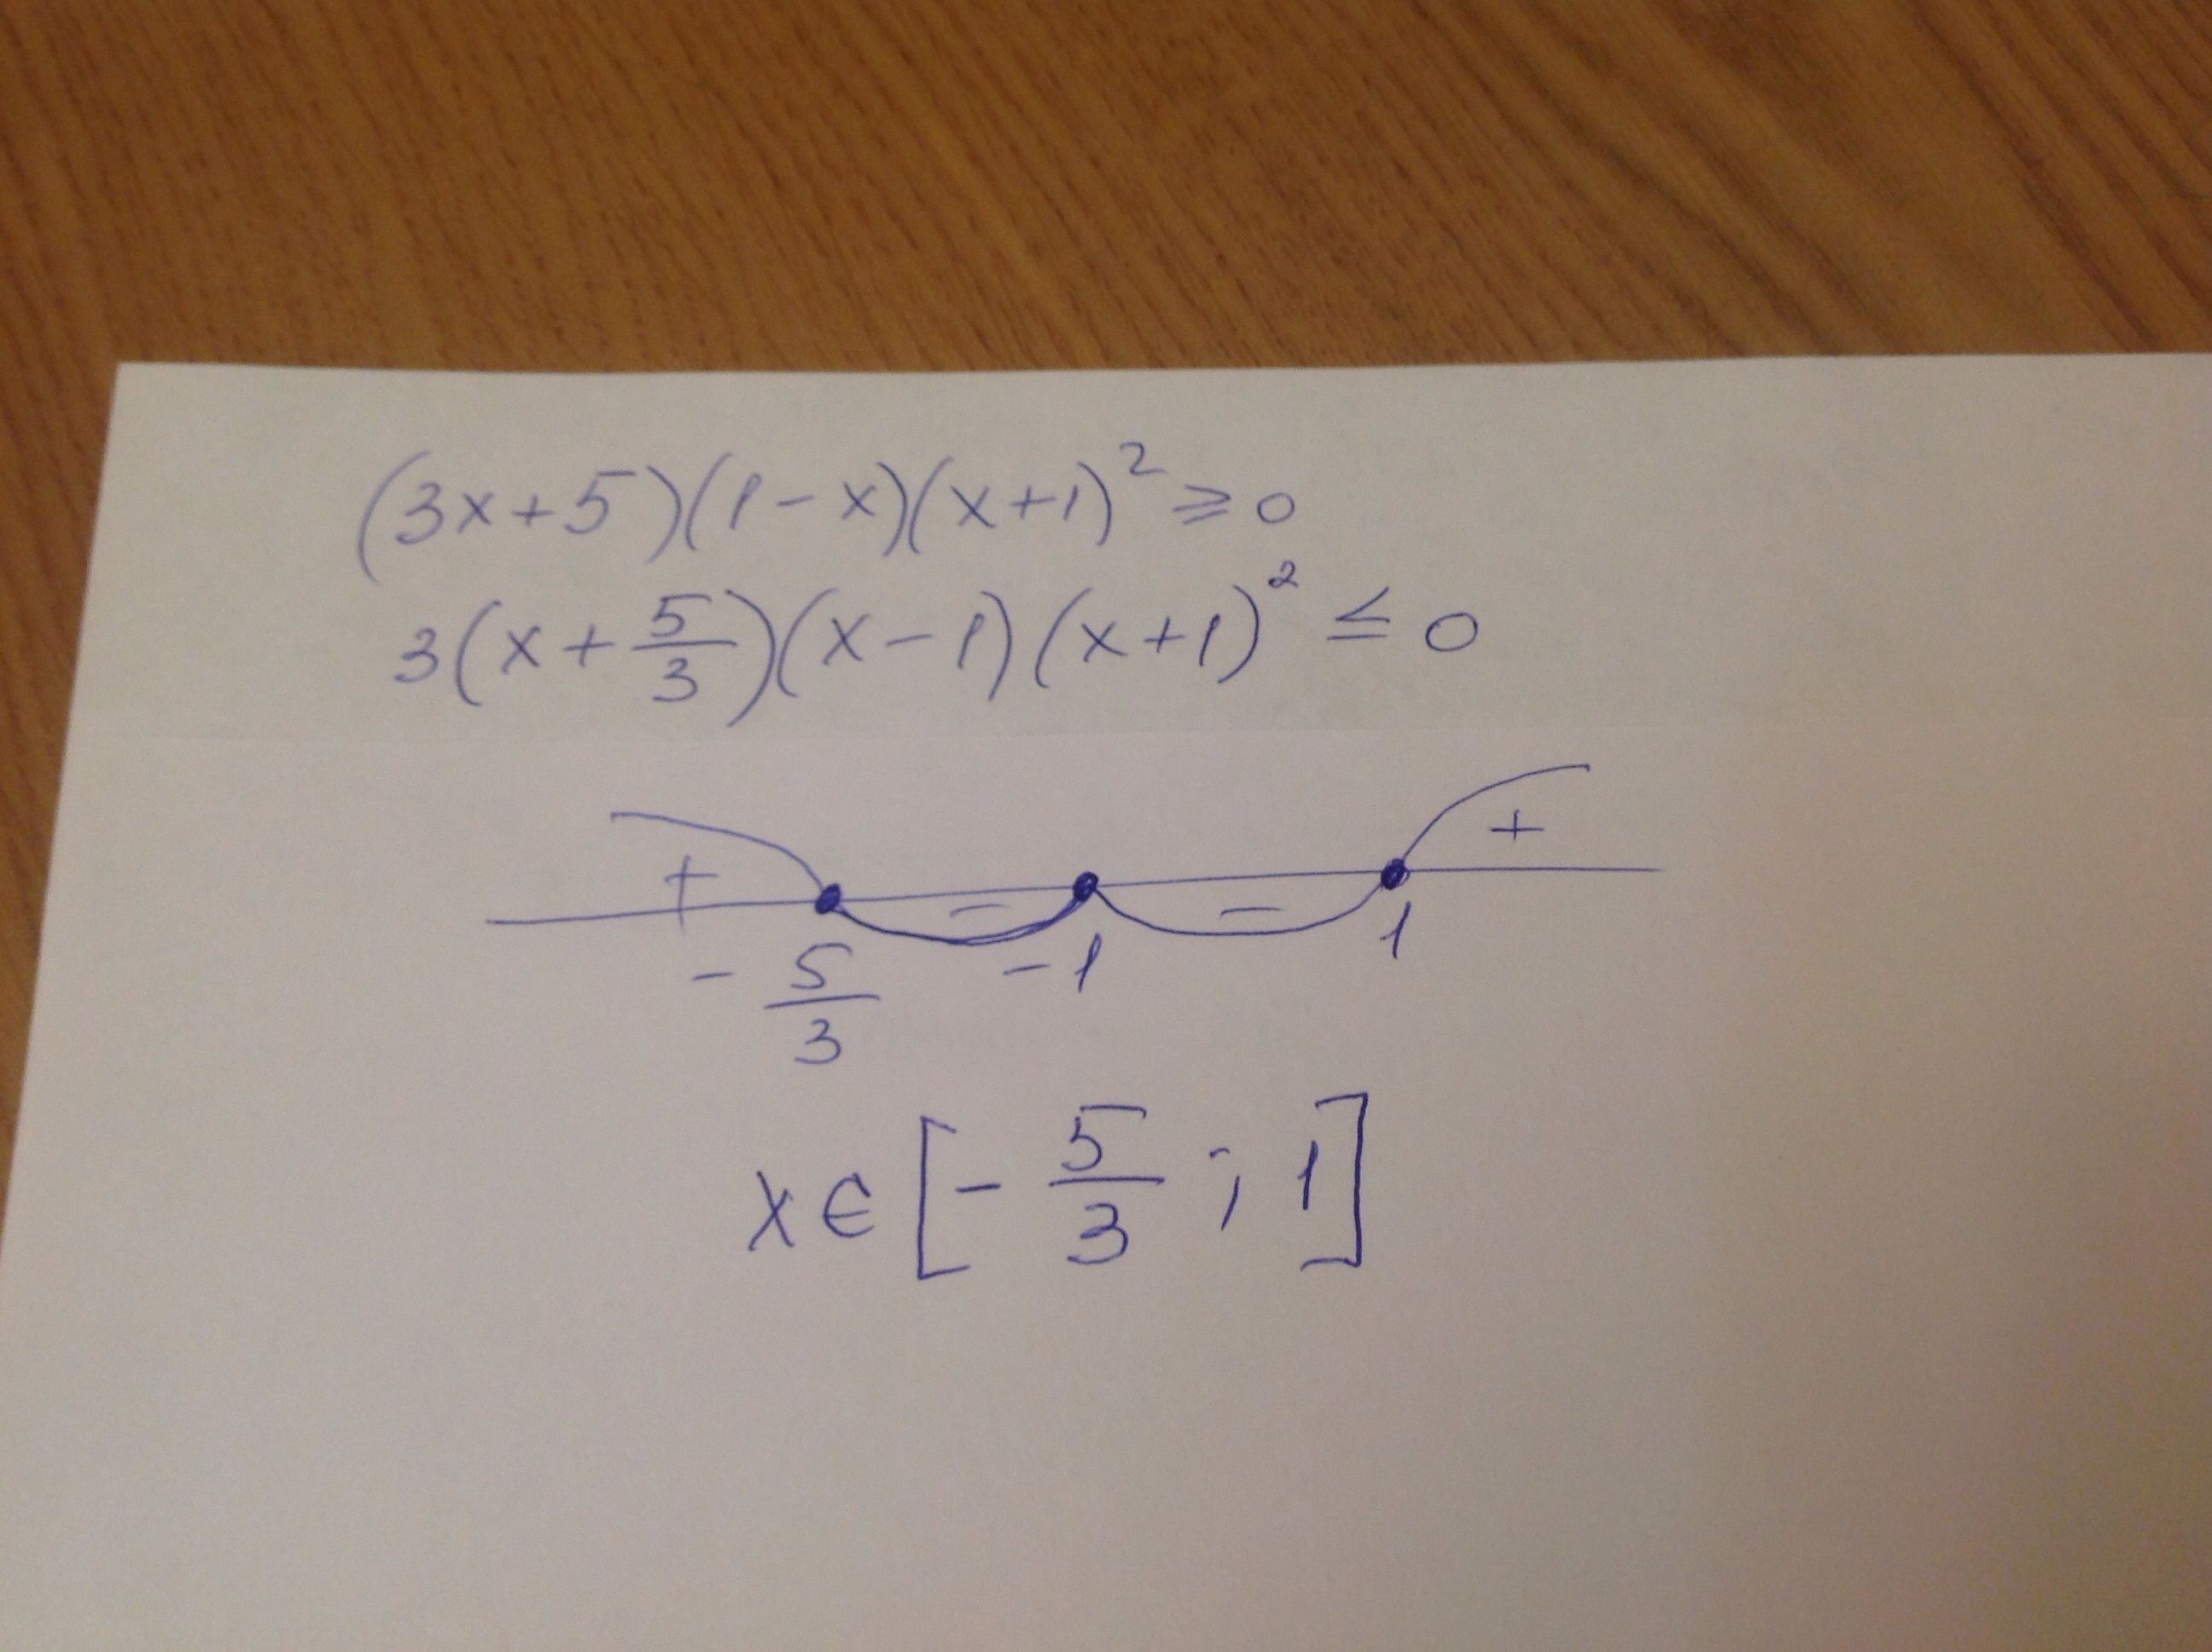 (3x+5)(1-x)(x+1)² ⩾ 0
3(x+5/3)(x-1)(x+1)² ≤ 0
+ - - +
-5/3 -1 1
x∈[-5/3;1]